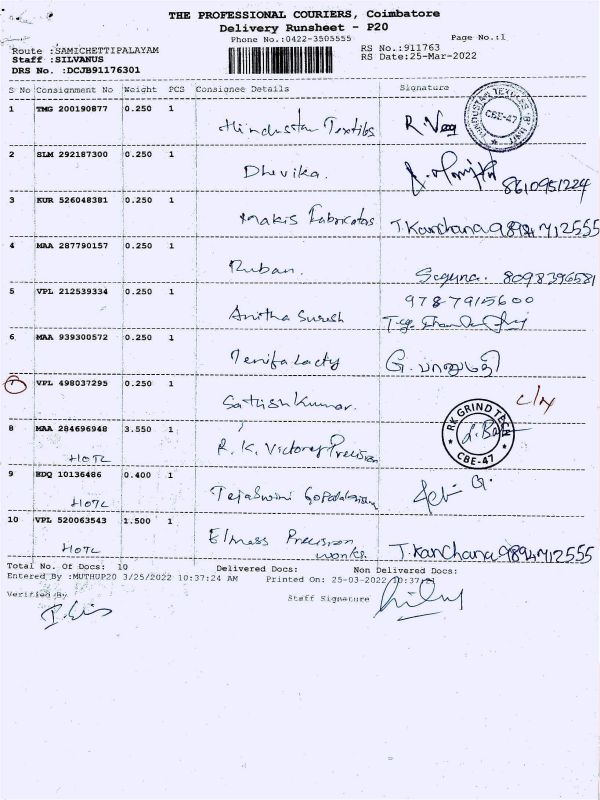 THE PROFESSIONAL COURIERS, Coimbatore
Delivery Runsheet - P20
Phone No.:0422-3505555 Page No.:1
Route :SAMICHETTIPALAYAM RS No.:911763
Staff :SILVANUS RS Date:25-Mar-2022
DRS No. :DCJB91176301
S No Consignment No Weight PCS Consignee Details Signature
1 TMG 200190877 0.250 1 Hindustan Textiles R.
HINDUSTAN TEXTILES 'B' UNIT CBE-47
2 SLM 292187300 0.250 1 Dhevika. 8610951224
3 KUR 526048381 0.250 1 Makis Fabricators T. Kanchana 9894712555
4 MAA 287790157 0.250 1 Ruban. Saguna. 8098396581
5 VPL 212539334 0.250 1 Anitha Suresh 9787915600
6 MAA 939300572 0.250 1 G. பானுமதி
7 VPL 498037295 0.250 1 Sathish Kumar.
8 MAA 284696948 3.550 1 R. K. Victory Precision
HOTL
RK GRIND TECH CBE-47
9 HDQ 10136486 0.400 1 Tejaswini Gopalakrishnan
HOTL
10 VPL 520063543 1.500 1 Elmess Precision works. T. Kanchana 9894712555
HOTL
Total No. Of Docs: 10 Delivered Docs: Non Delivered Docs:
Entered By :MUTHUP20 3/25/2022 10:37:24 AM Printed On: 25-03-2022 10:37:24
Verified By Staff Signature